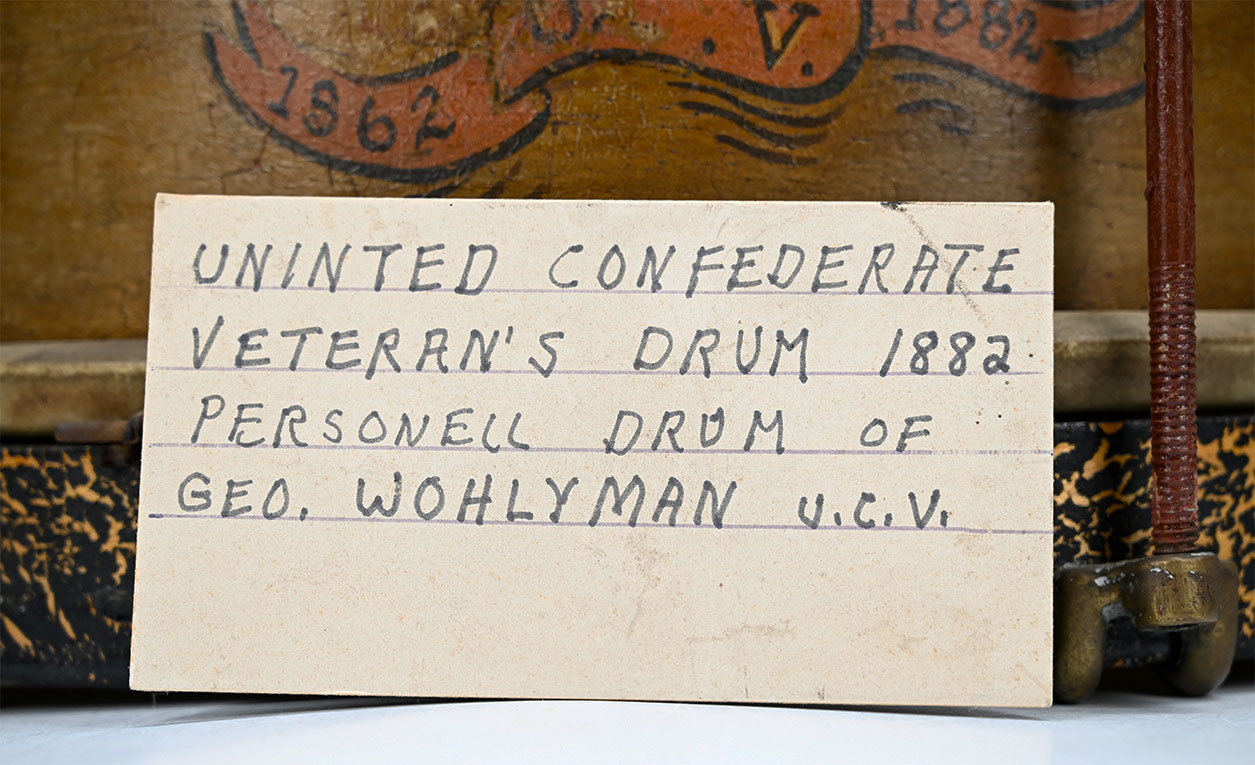 V.
1882
1862
UNINTED CONFEDERATE
VETERAN'S DRUM 1882
PERSONELL DRUM OF
GEO. WOHLYMAN U.C.V.